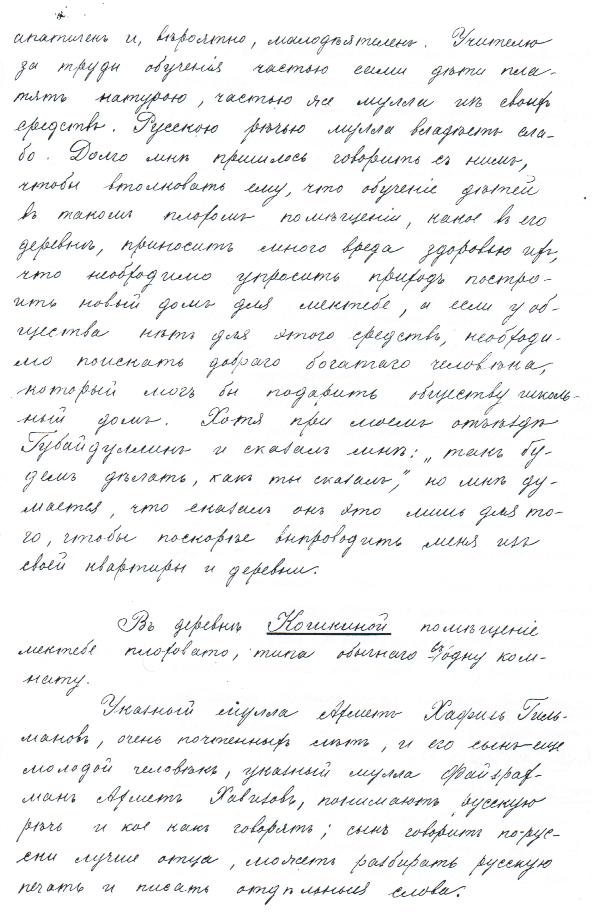 апатиченъ и, вѣроятно, малодѣятеленъ. Учителю
за труды обученія частью сами дѣти пла-
тятъ натурою, частью же мулла изъ своихъ
средствъ. Русскою рѣчью мулла владѣетъ сла-
бо. Долго мнѣ пришлось говорить съ нимъ,
чтобы втолковать ему, что обученіе дѣтей
въ такомъ плохомъ помѣщеніи, какое въ его
деревнѣ, приноситъ много вреда здоровью ихъ,
что необходимо упросить приходъ постро-
ить новый домъ для мектебе, а если у об-
щества нѣтъ для этого средствъ, необходи-
мо поискать добраго богатаго человѣка,
который могъ бы подарить обществу школь-
ный домъ. Хотя при моемъ отъѣздѣ
Губайдуллинъ и сказалъ мнѣ: „такъ бу-
демъ дѣлать, какъ ты сказалъ," но мнѣ ду-
мается, что сказалъ онъ это лишь для то-
го, чтобы поскорѣе выпроводить меня изъ
своей квартиры и деревни.
Въ деревнѣ помѣщеніе
мектебе плоховато, типа обычнаго одну ком-
нату.
Указный мулла Ахметъ Хафизъ Гиль-
мановъ, очень почтенныхъ лѣтъ, и его сынъ еще
молодой человѣкъ, указный мулла Файзрах-
манъ Ахметъ Хавизовъ, понимаютъ русскую
рѣчь и кое какъ говорятъ; сынъ говоритъ по рус-
ски лучше отца, можетъ разбирать русскую
печать и писать отдѣльныя слова.